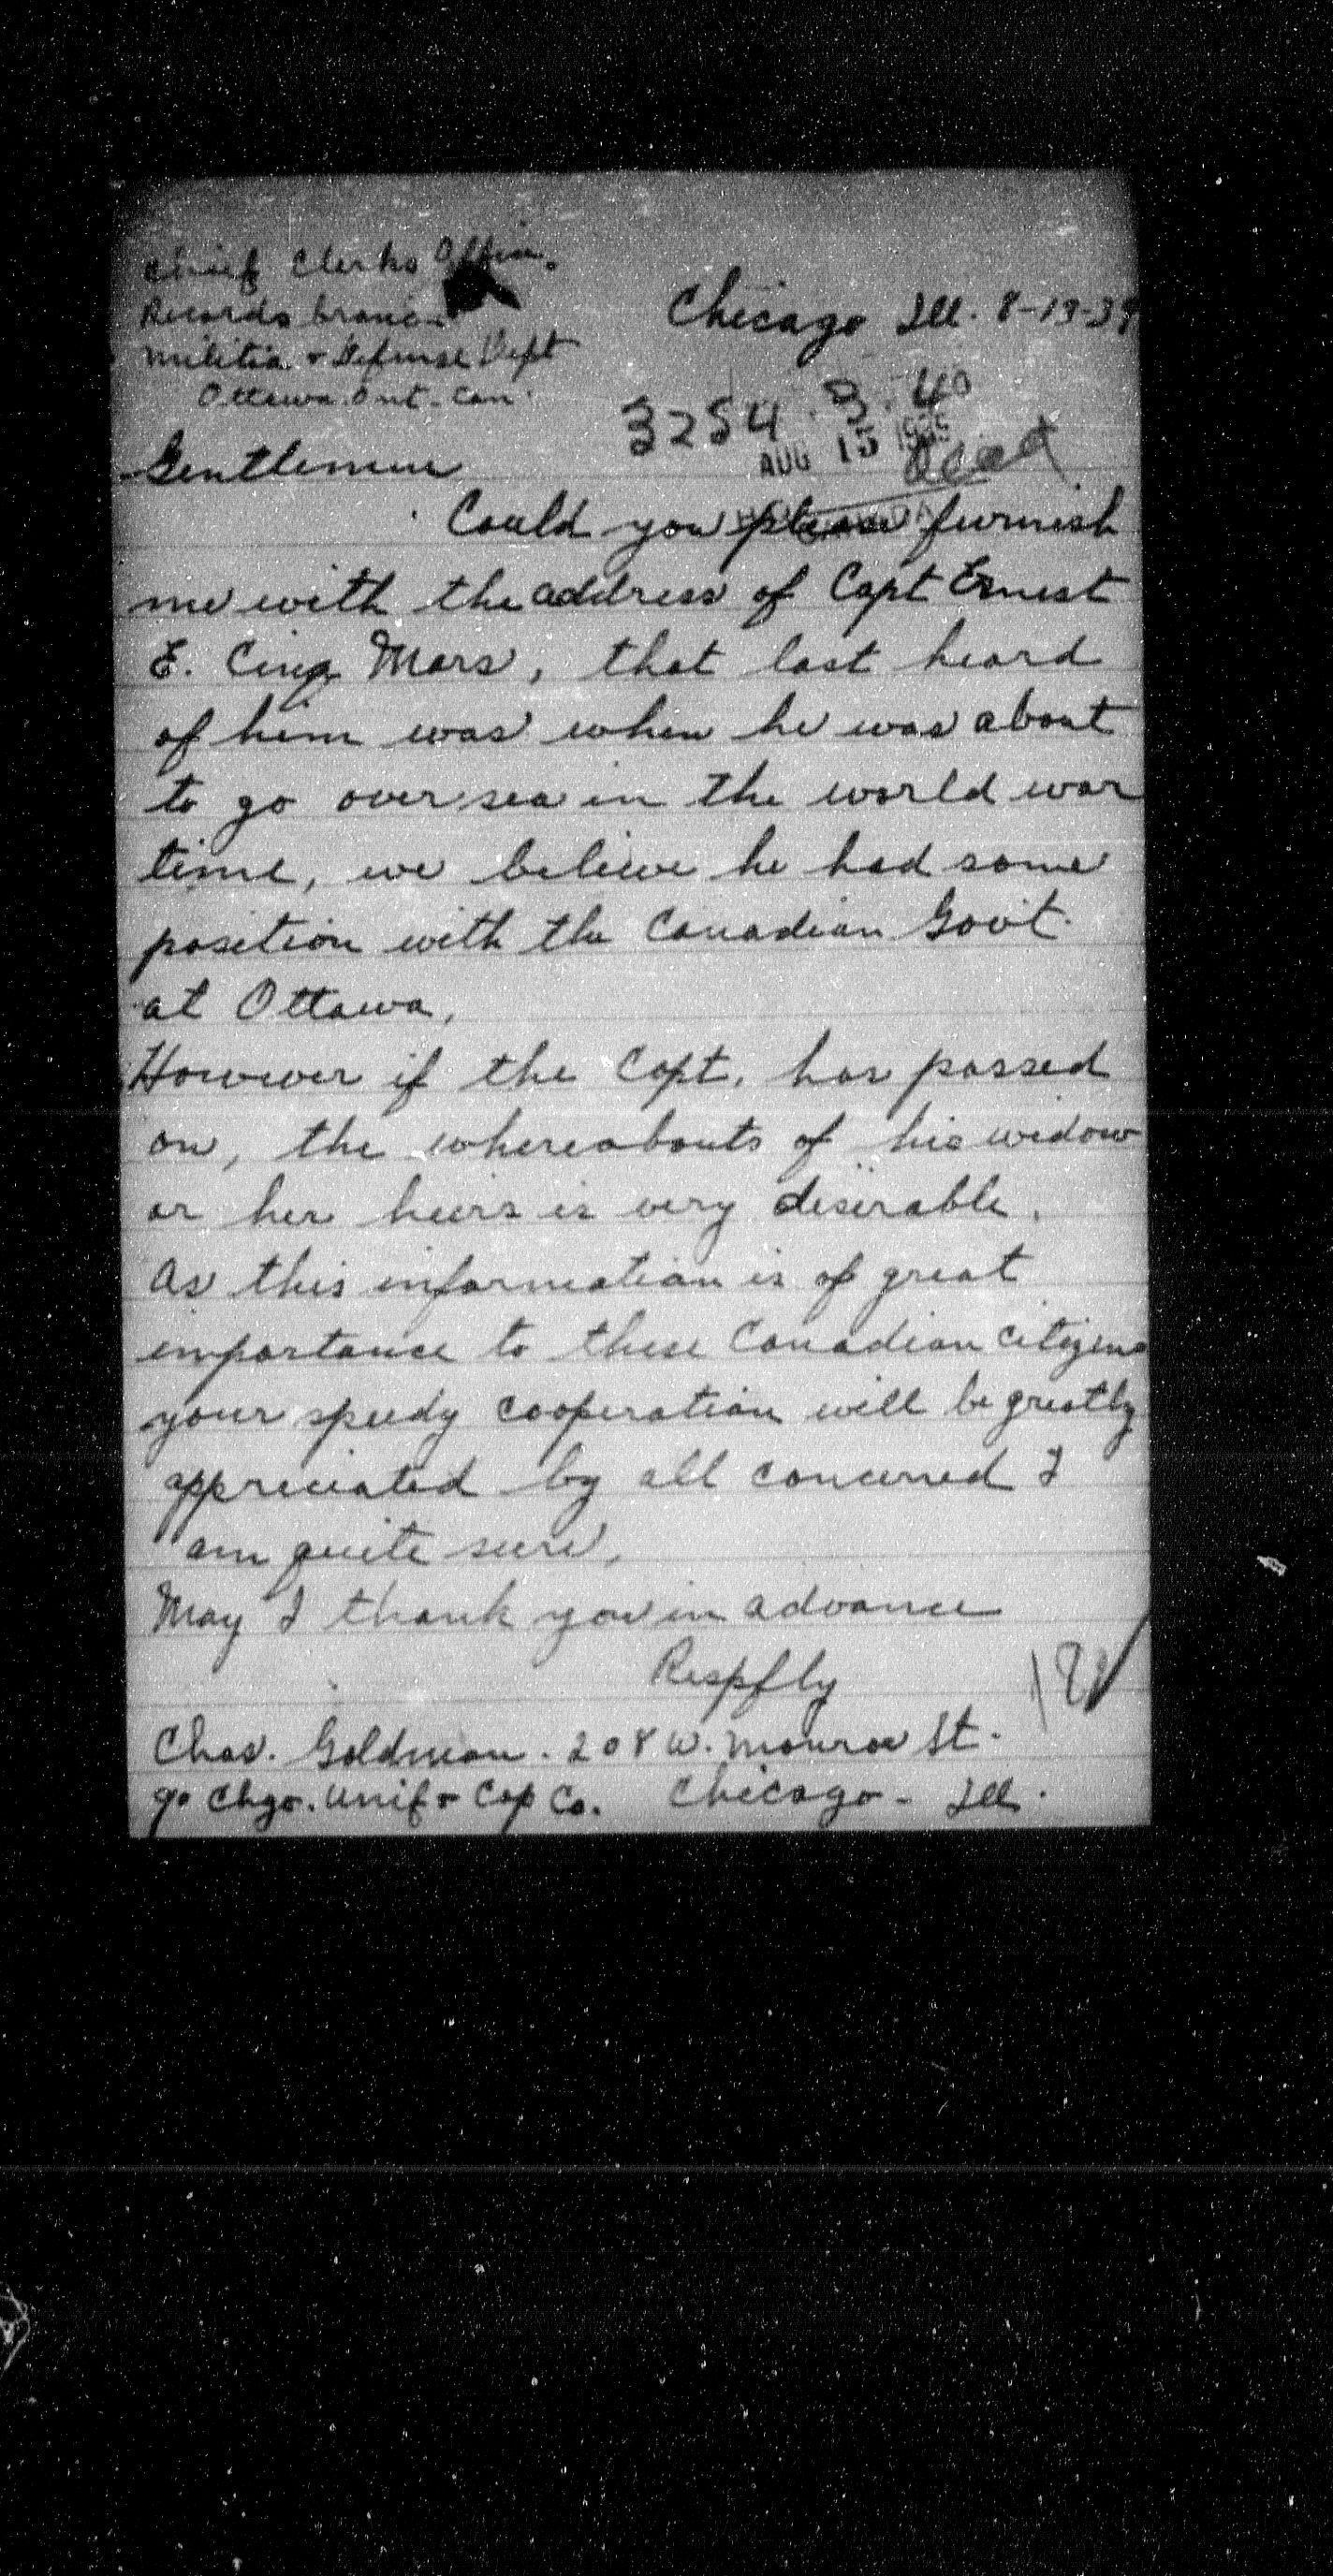 Chief Clerks Office.
Records branch
Militia & Defense Dept
Ottawa. Ont. Can.
Chicago Ill. 8-13-35
3254 . 3. 40
AUG 15 1935
dead
Gentlemen
Could you please furnish
me with the address of Capt Ernest
E. Cinq Mars, that last heard
of him was when he was about
to go over sea in the world war
time, we believe he had some
position with the Canadian Govt.
at Ottawa,
However if the Capt. has passed
on, the whereabouts of his widow
or her heirs is very desirable.
As this information is of great
importance to these Canadian citizens
your speedy cooperation will be greatly
appreciated by all concerned I
am quite sure,
May I thank you in advance
Respfly
Chas. Goldman. 208 W. Monroe St.
c/o Chgo. Unif & Cap Co. Chicago - Ill.